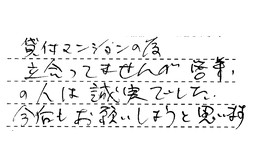 貸付マンションの為
立会ってませんが営業,
の人は誠実でした.
今后もお願いしようと思います